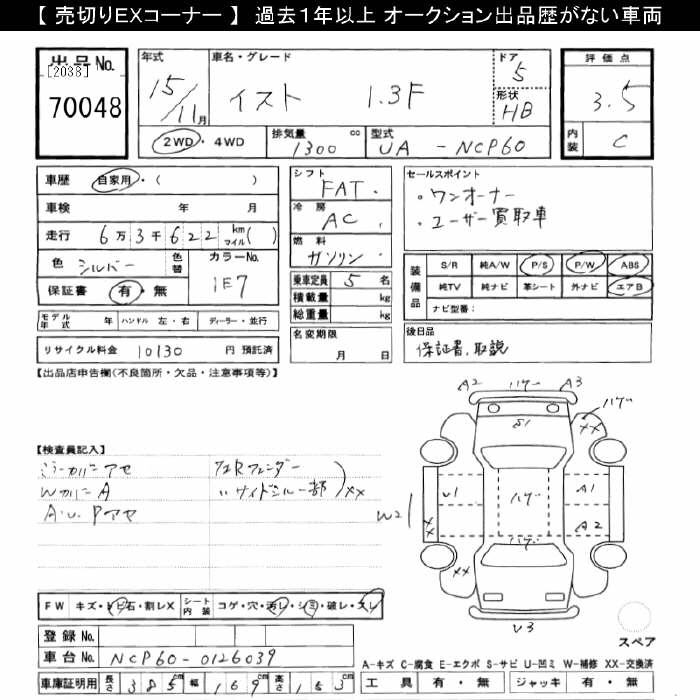 【 売切りEXコーナー 】 過去1年以上 オークション出品歴がない車両
出品No.
[2038]
70048
年式
15/11月
車名・グレード
イスト 1.3F
ドア
5
形状
HB
評価点
3.5
内装
C
2WD・4WD
排気量
1300 cc
型式
UA - NCP60
車歴
自家用・( )
車検 年 月
走行 6万3千622 km マイル( )
色 シルバー 色替
カラーNo.
1E7
保証書 有・無
モデル年式 年 ハンドル 左・右 ディーラー・並行
リサイクル料金 10130 円 預託済
シフト
FAT
冷房
AC
燃料
ガソリン
乗車定員 5 名
積載量 kg
総重量 kg
名変期限
月 日
セールスポイント
・ワンオーナー
・ユーザー買取車
装備品
S/R 純A/W P/S P/W ABS
純TV 純ナビ 革シート 外ナビ エアB
ナビ型番:
後日品
保証書、取説
【出品店申告欄(不良箇所・欠品・注意事項等)】
【検査員記入】
ミラーカバーアセ
WカバーA
A・U. Pアセ
フェンダー
サイドシル一部
XX
A2
ハゲ
A3
ハゲ
XX
S1
U1
ハゲ
A1
A2
W2
XX
ハゲ
XX
U3
スペア
FW キズ・トビ石・割レX シート内装 コゲ・穴・汚レ・シミ・破レ・スレ
登録No.
車台No. NCP60-0126039
車庫証明用 長さ 385cm 幅 169cm 高さ 153cm
A-キズ C-腐食 E-エクボ S-サビ U-凹ミ W-補修 XX-交換済
工具 有・無 ジャッキ 有・無